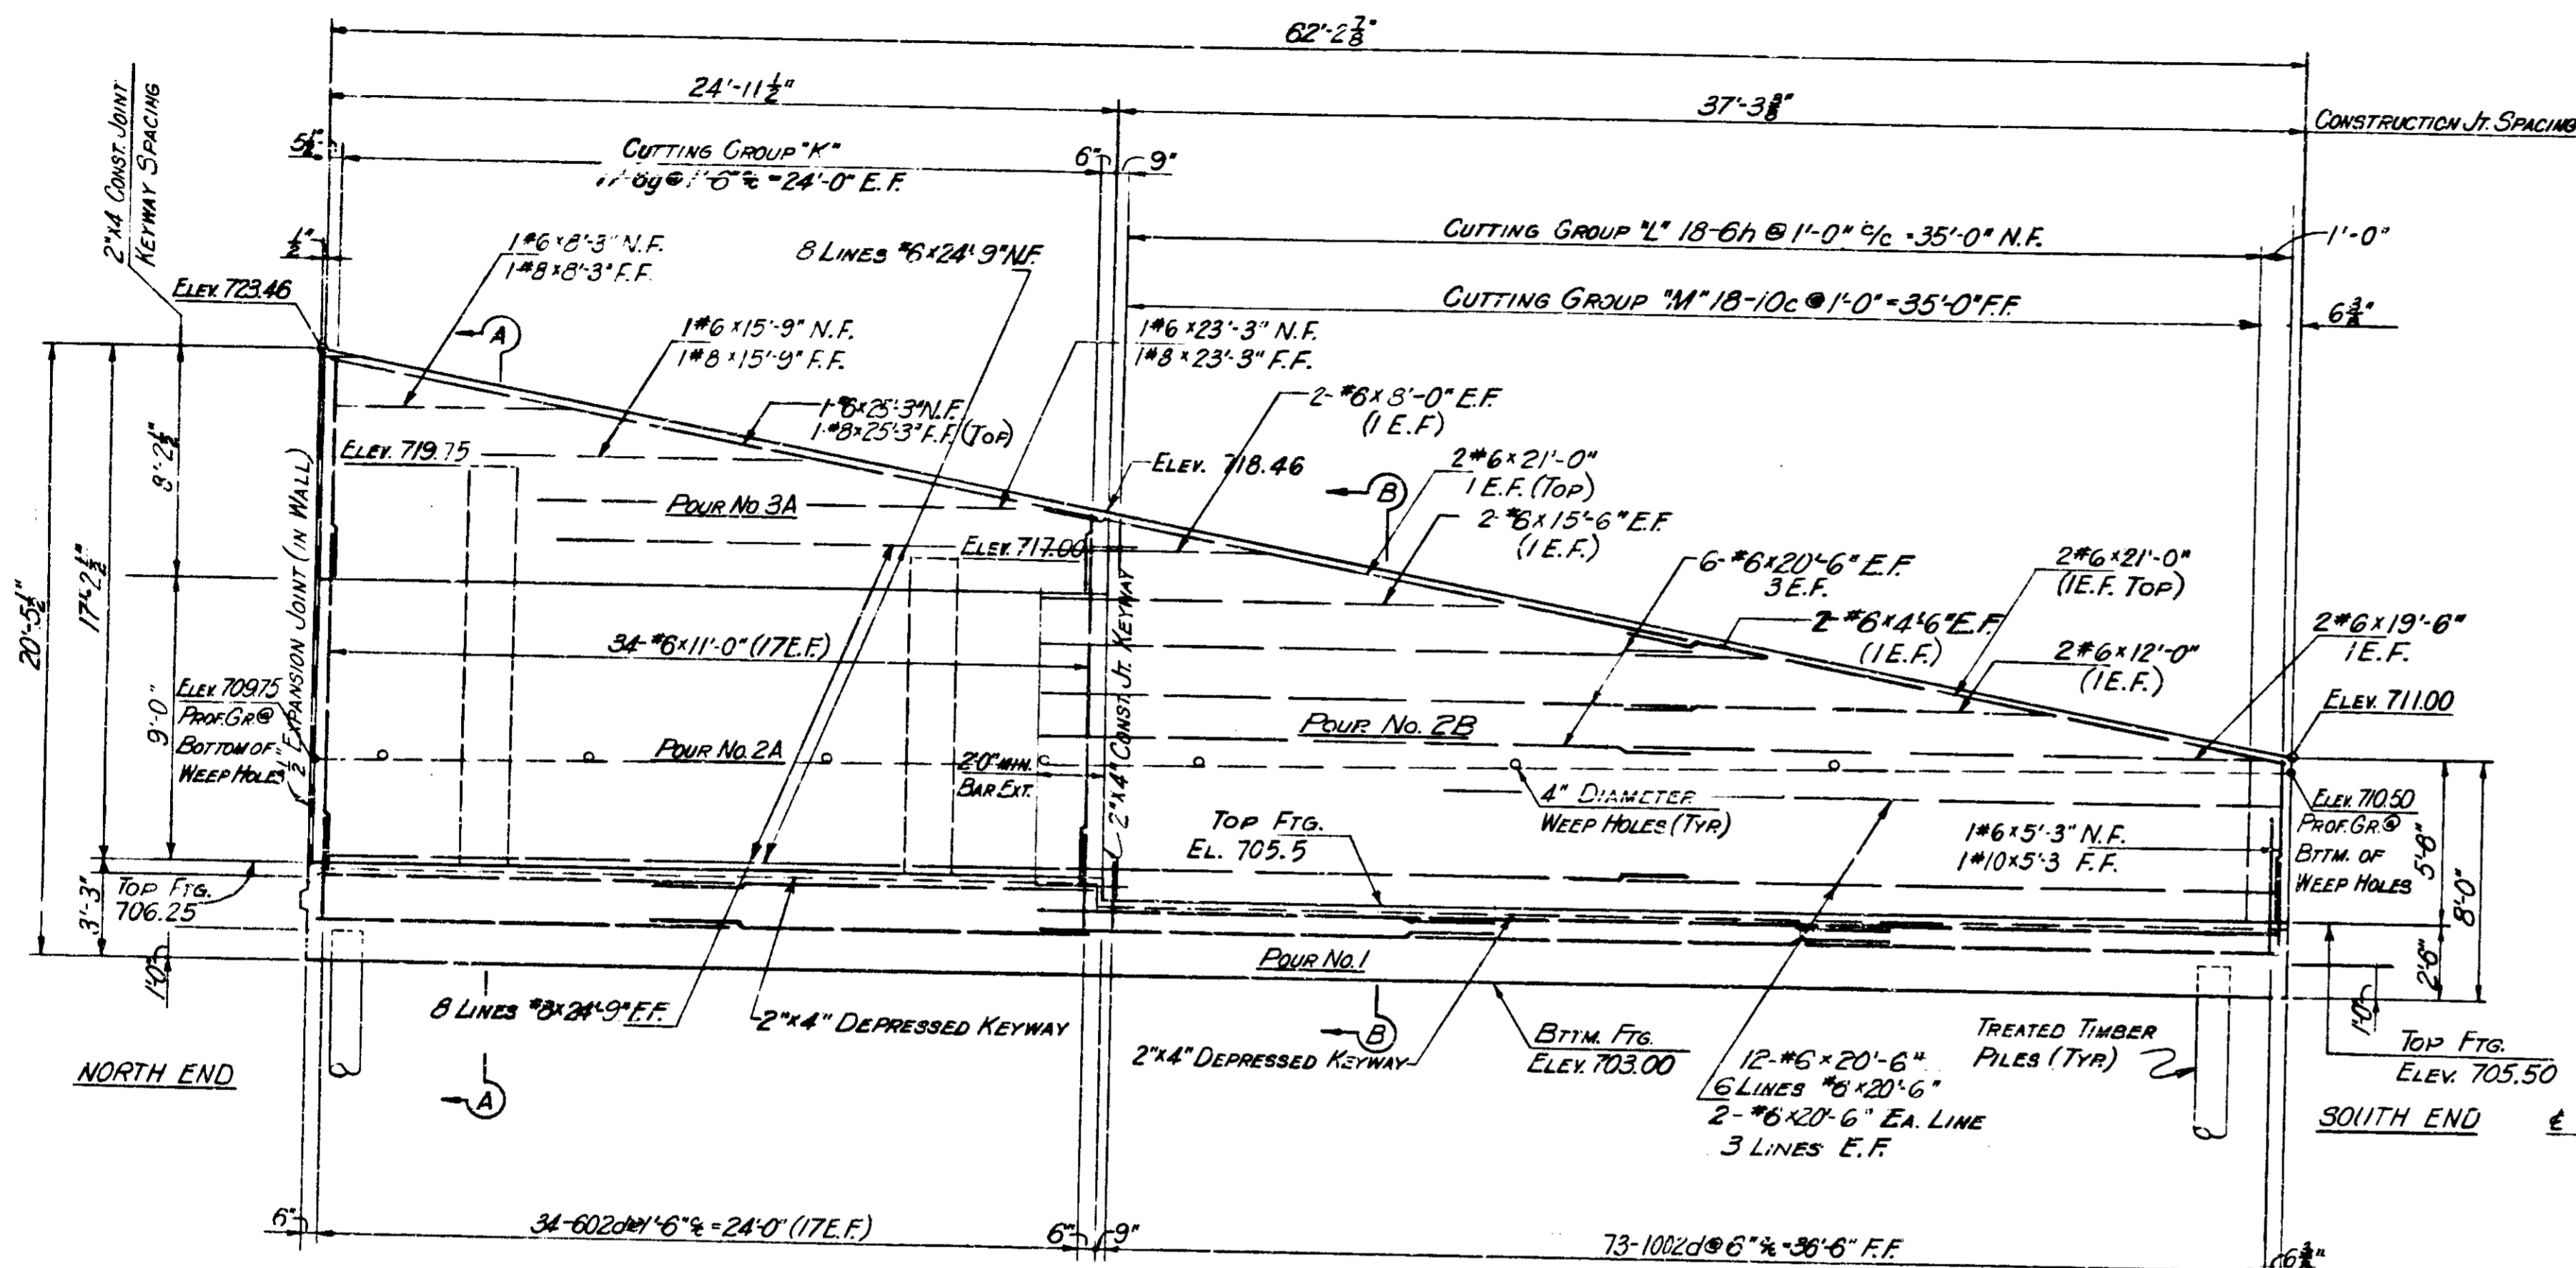 62'-2 7/8"
24'-11 1/2"
37'-3 3/8"
CONSTRUCTION JT. SPACING
2"X4 CONST. JOINT
KEYWAY SPACING
5 1/2"
CUTTING GROUP "K"
@ 1'-6" c/c = 24'-0" E.F.
6"
9"
CUTTING GROUP "L" 18-6h @ 1'-0" c/c = 35'-0" N.F.
1'-0"
CUTTING GROUP "M" 18-10c @ 1'-0" = 35'-0" F.F.
6 3/4"
1/2"
ELEV. 723.46
1#6×8'-3" N.F.
1#8×8'-3" F.F.
8 LINES #6×24'-9" N.F.
A
1#6×15'-9" N.F.
1#8×15'-9" F.F.
1#6×23'-3" N.F.
1#8×23'-3" F.F.
2-#6×8'-0" E.F.
(1 E.F.)
1-#6×25'-3" N.F.
1-#8×25'-3" F.F. (TOP)
ELEV. 719.75
ELEV. 718.46
2#6×21'-0"
1 E.F. (TOP)
B
2-#6×15'-6" E.F.
(1 E.F.)
POUR NO. 3A
ELEV. 717.00
6-#6×20'-6" E.F.
3 E.F.
2#6×21'-0"
(1E.F. TOP)
2-#6×4'-6" E.F.
(1 E.F.)
2#6×12'-0"
(1 E.F.)
2#6×19'-6"
1 E.F.
20'-5 1/2"
17'-2 1/2"
8'-2 1/2"
9'-0"
3'-3"
1'-0"
1/2" EXPANSION JOINT (IN WALL)
34-#6×11'-0" (17 E.F.)
2"X4" CONST. JT. KEYWAY
ELEV. 709.75
PROF. GR. @
BOTTOM OF
WEEP HOLES
POUR NO. 2A
2'-0" MIN.
BAR EXT.
POUR NO. 2B
ELEV. 711.00
4" DIAMETER
WEEP HOLES (TYP.)
TOP FTG.
EL. 705.5
1#6×5'-3" N.F.
1#10×5'-3 F.F.
ELEV. 710.50
PROF. GR. @
BTTM. OF
WEEP HOLES
5'-8"
8'-0"
2'-6"
1'-0"
TOP FTG.
706.25
POUR NO. 1
8 LINES #8×24'-9" F.F.
2"X4" DEPRESSED KEYWAY
B
2"X4" DEPRESSED KEYWAY
BTTM. FTG.
ELEV. 703.00
12-#6×20'-6"
6 LINES #6×20'-6"
2-#6×20'-6" EA. LINE
3 LINES E.F.
TREATED TIMBER
PILES (TYP.)
TOP FTG.
ELEV. 705.50
NORTH END
A
SOUTH END
℄
6"
34-602d@1'-6" c/c = 24'-0" (17E.F.)
6"
9"
73-1002d@6" c/c = 36'-6" F.F.
6 3/8"